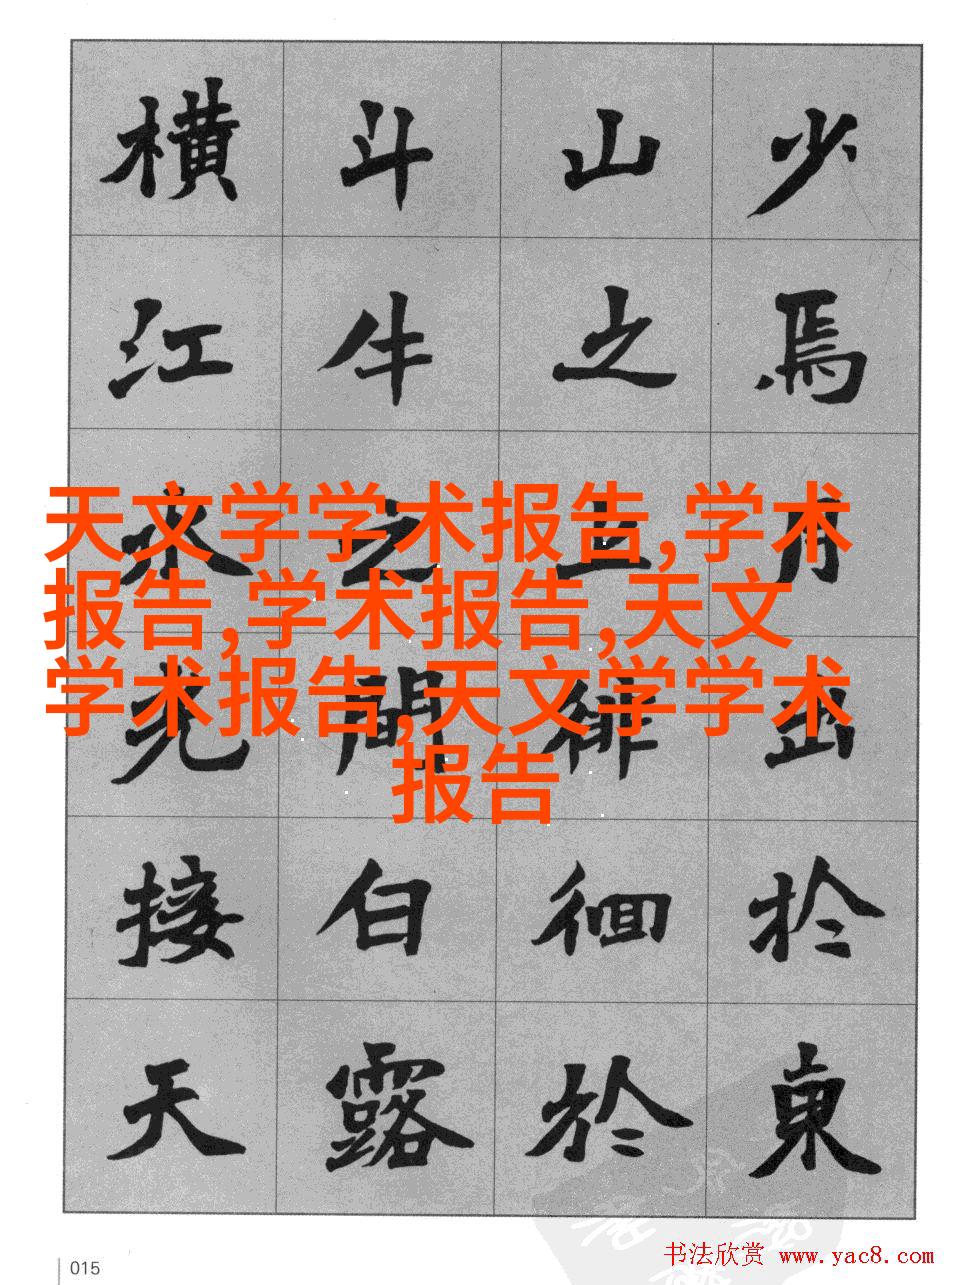 少焉月出於東
山之上徘徊於
斗牛之間白露
橫江水光接天
天文学学术报告,学术
报告,学术报告,天文
学术报告,天文学学术
报告
015
书法欣赏 www.yac8.com